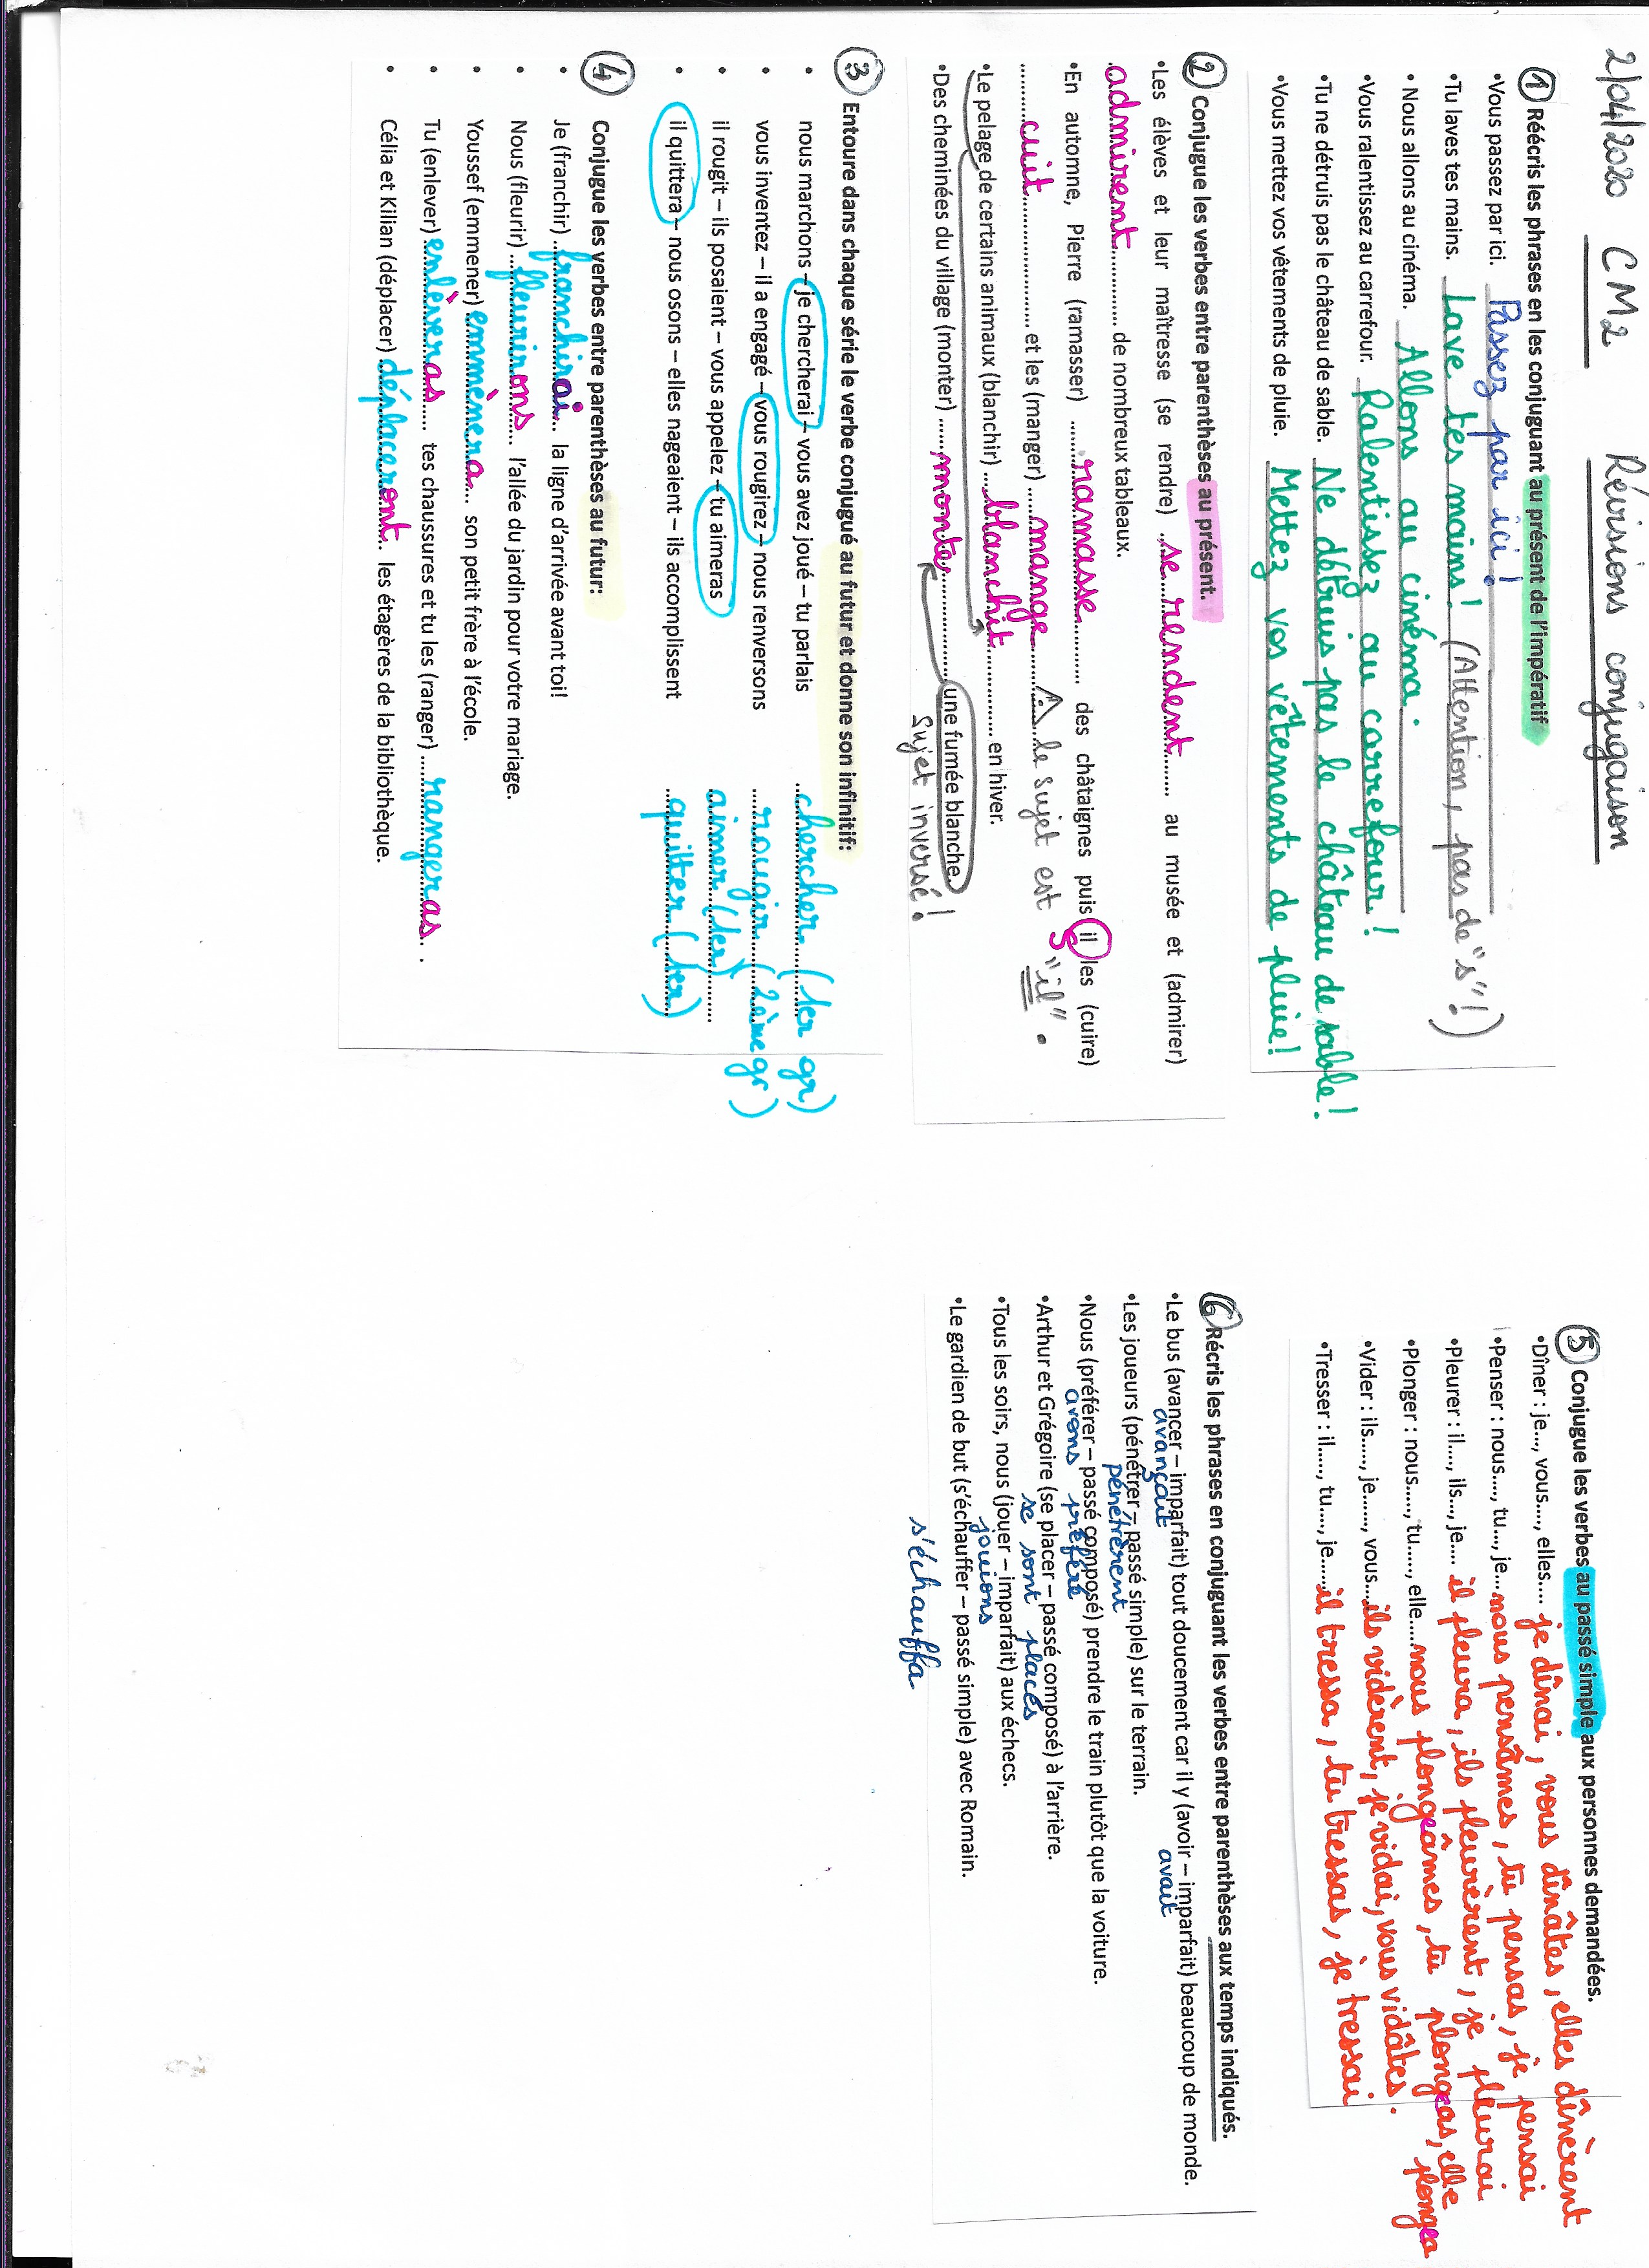 2/04/2020 CM2 Révisions conjugaison
① Réécris les phrases en les conjuguant au présent de l'impératif
•Vous passez par ici. Passez par ici!
•Tu laves tes mains. Lave tes mains! (Attention, pas de "s"!)
• Nous allons au cinéma. Allons au cinéma.
•Vous ralentissez au carrefour. Ralentissez au carrefour!
•Tu ne détruis pas le château de sable. Ne détruis pas le château de sable!
•Vous mettez vos vêtements de pluie. Mettez vos vêtements de pluie!
② Conjugue les verbes entre parenthèses au présent.
•Les élèves et leur maîtresse (se rendre) ..se rendent...... au musée et (admirer)
.admirent.......... de nombreux tableaux.
•En automne, Pierre (ramasser) ......ramasse.......... des châtaignes puis il les (cuire)
..........cuit.................... et les (manger) .....mange...... ⚠ le sujet est "il".
•Le pelage de certains animaux (blanchir) ....blanchit............... en hiver.
•Des cheminées du village (monter) ......monte................ une fumée blanche.
Sujet inversé!
③ Entoure dans chaque série le verbe conjugué au futur et donne son infinitif:
• nous marchons – je chercherai – vous avez joué – tu parlais ...chercher....(1er gr)
• vous inventez – il a engagé – vous rougirez – nous renversons ....rougir....(2ème gr)
• il rougit – ils posaient – vous appelez – tu aimeras aimer (1er)
• il quittera – nous osons – elles nageaient – ils accomplissent ..quitter (1er)
④ Conjugue les verbes entre parenthèses au futur:
• Je (franchir) ..franchirai... la ligne d'arrivée avant toi!
• Nous (fleurir) ...fleurirons..... l'allée du jardin pour votre mariage.
• Youssef (emmener) emmènera.... son petit frère à l'école.
• Tu (enlever) enlèveras..... tes chaussures et tu les (ranger) ....rangeras.. .
• Célia et Kilian (déplacer) déplaceront.. les étagères de la bibliothèque.
⑤ Conjugue les verbes au passé simple aux personnes demandées.
•Dîner : je..., vous...., elles.... je dînai, vous dînâtes, elles dînèrent
•Penser : nous...., tu..., je... nous pensâmes, tu pensas, je pensai
•Pleurer : il...., ils..., je.... il pleura, ils pleurèrent, je pleurai
•Plonger : nous....., tu....., elle..... nous plongeâmes, tu plongeas, elle plongea
•Vider : ils....., je......, vous.... ils vidèrent, je vidai, vous vidâtes.
•Tresser : il....., tu...., je..... il tressa, tu tressas, je tressai
⑥ Récris les phrases en conjuguant les verbes entre parenthèses aux temps indiqués.
•Le bus (avancer – imparfait) tout doucement car il y (avoir – imparfait) beaucoup de monde.
avançait avait
•Les joueurs (pénétrer – passé simple) sur le terrain.
pénétrèrent
•Nous (préférer – passé composé) prendre le train plutôt que la voiture.
avons préféré
•Arthur et Grégoire (se placer – passé composé) à l'arrière.
se sont placés
•Tous les soirs, nous (jouer – imparfait) aux échecs.
jouions
•Le gardien de but (s'échauffer – passé simple) avec Romain.
s'échauffa